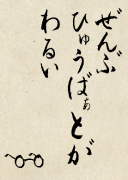 ぜんぶ
ひゅうばぁとが
わるい